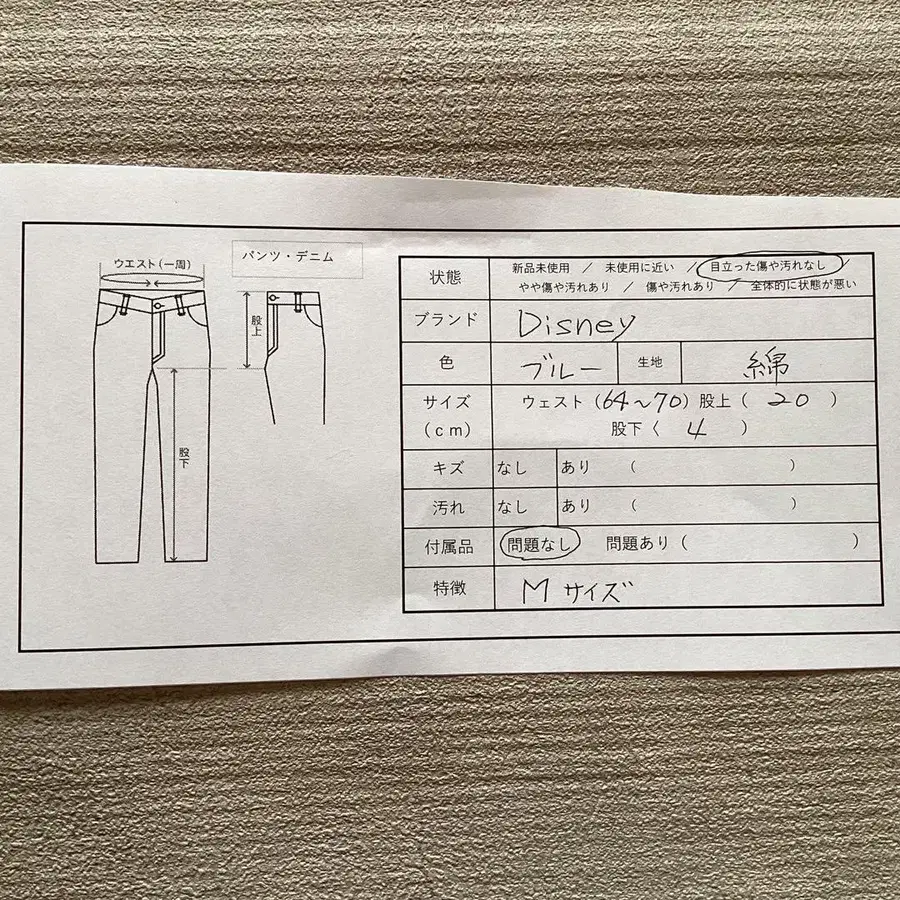 ウエスト(一周)
パンツ・デニム
股上
股下
状態 新品未使用 / 未使用に近い / 目立った傷や汚れなし /
やや傷や汚れあり / 傷や汚れあり / 全体的に状態が悪い
ブランド Disney
色 ブルー 生地 綿
サイズ ウェスト(64~70)股上( 20 )
(cm) 股下( 4 )
キズ なし あり ( )
汚れ なし あり ( )
付属品 問題なし 問題あり( )
特徴 M サイズ